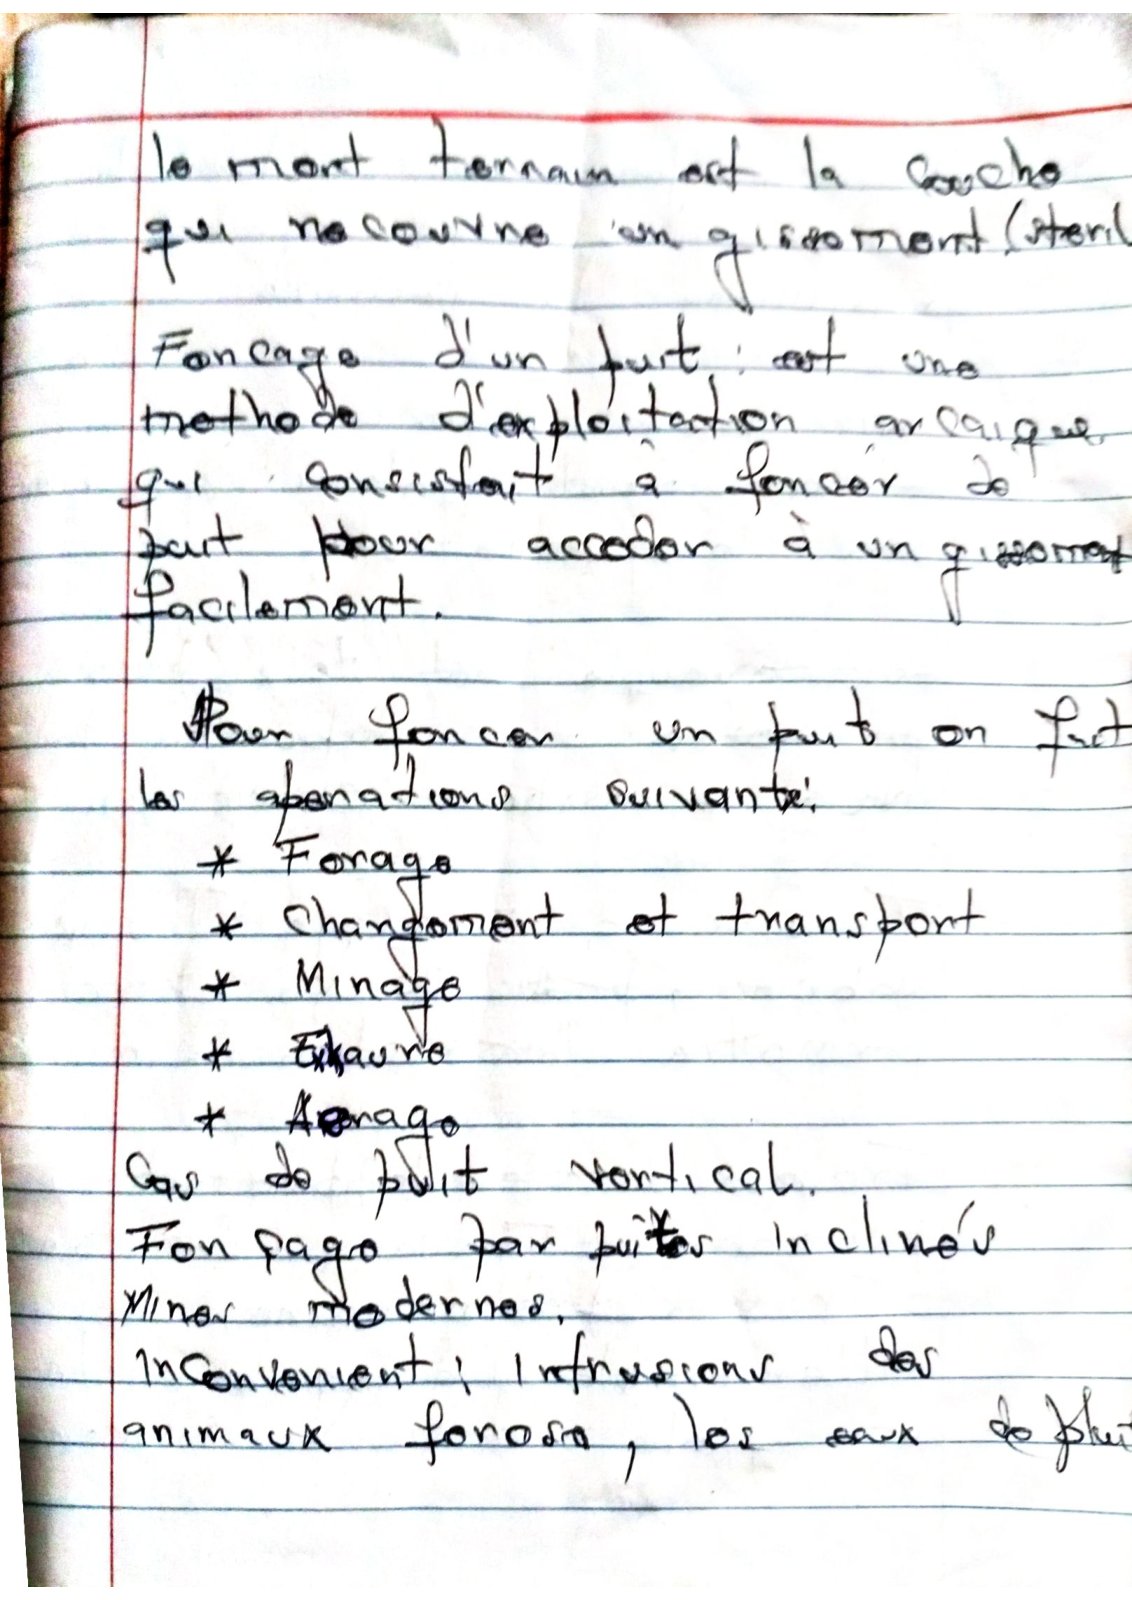 le mort terrain est la couche
qui recouvre un gissement (steril
Foncage d'un puit : est une
methode d'exploitation arcaique
qui consistait à foncer de
puit pour acceder à un gissement
facilement.
Pour foncer un puit on fait
les operations suivante:
* Forage
* Chargement et transport
* Minage
* Exaure
* Aerage
Cas de puit vertical.
Fonçage par puits inclinés
Mines modernes.
Inconvenient : intrusions des
animaux ferose, les eaux de plui